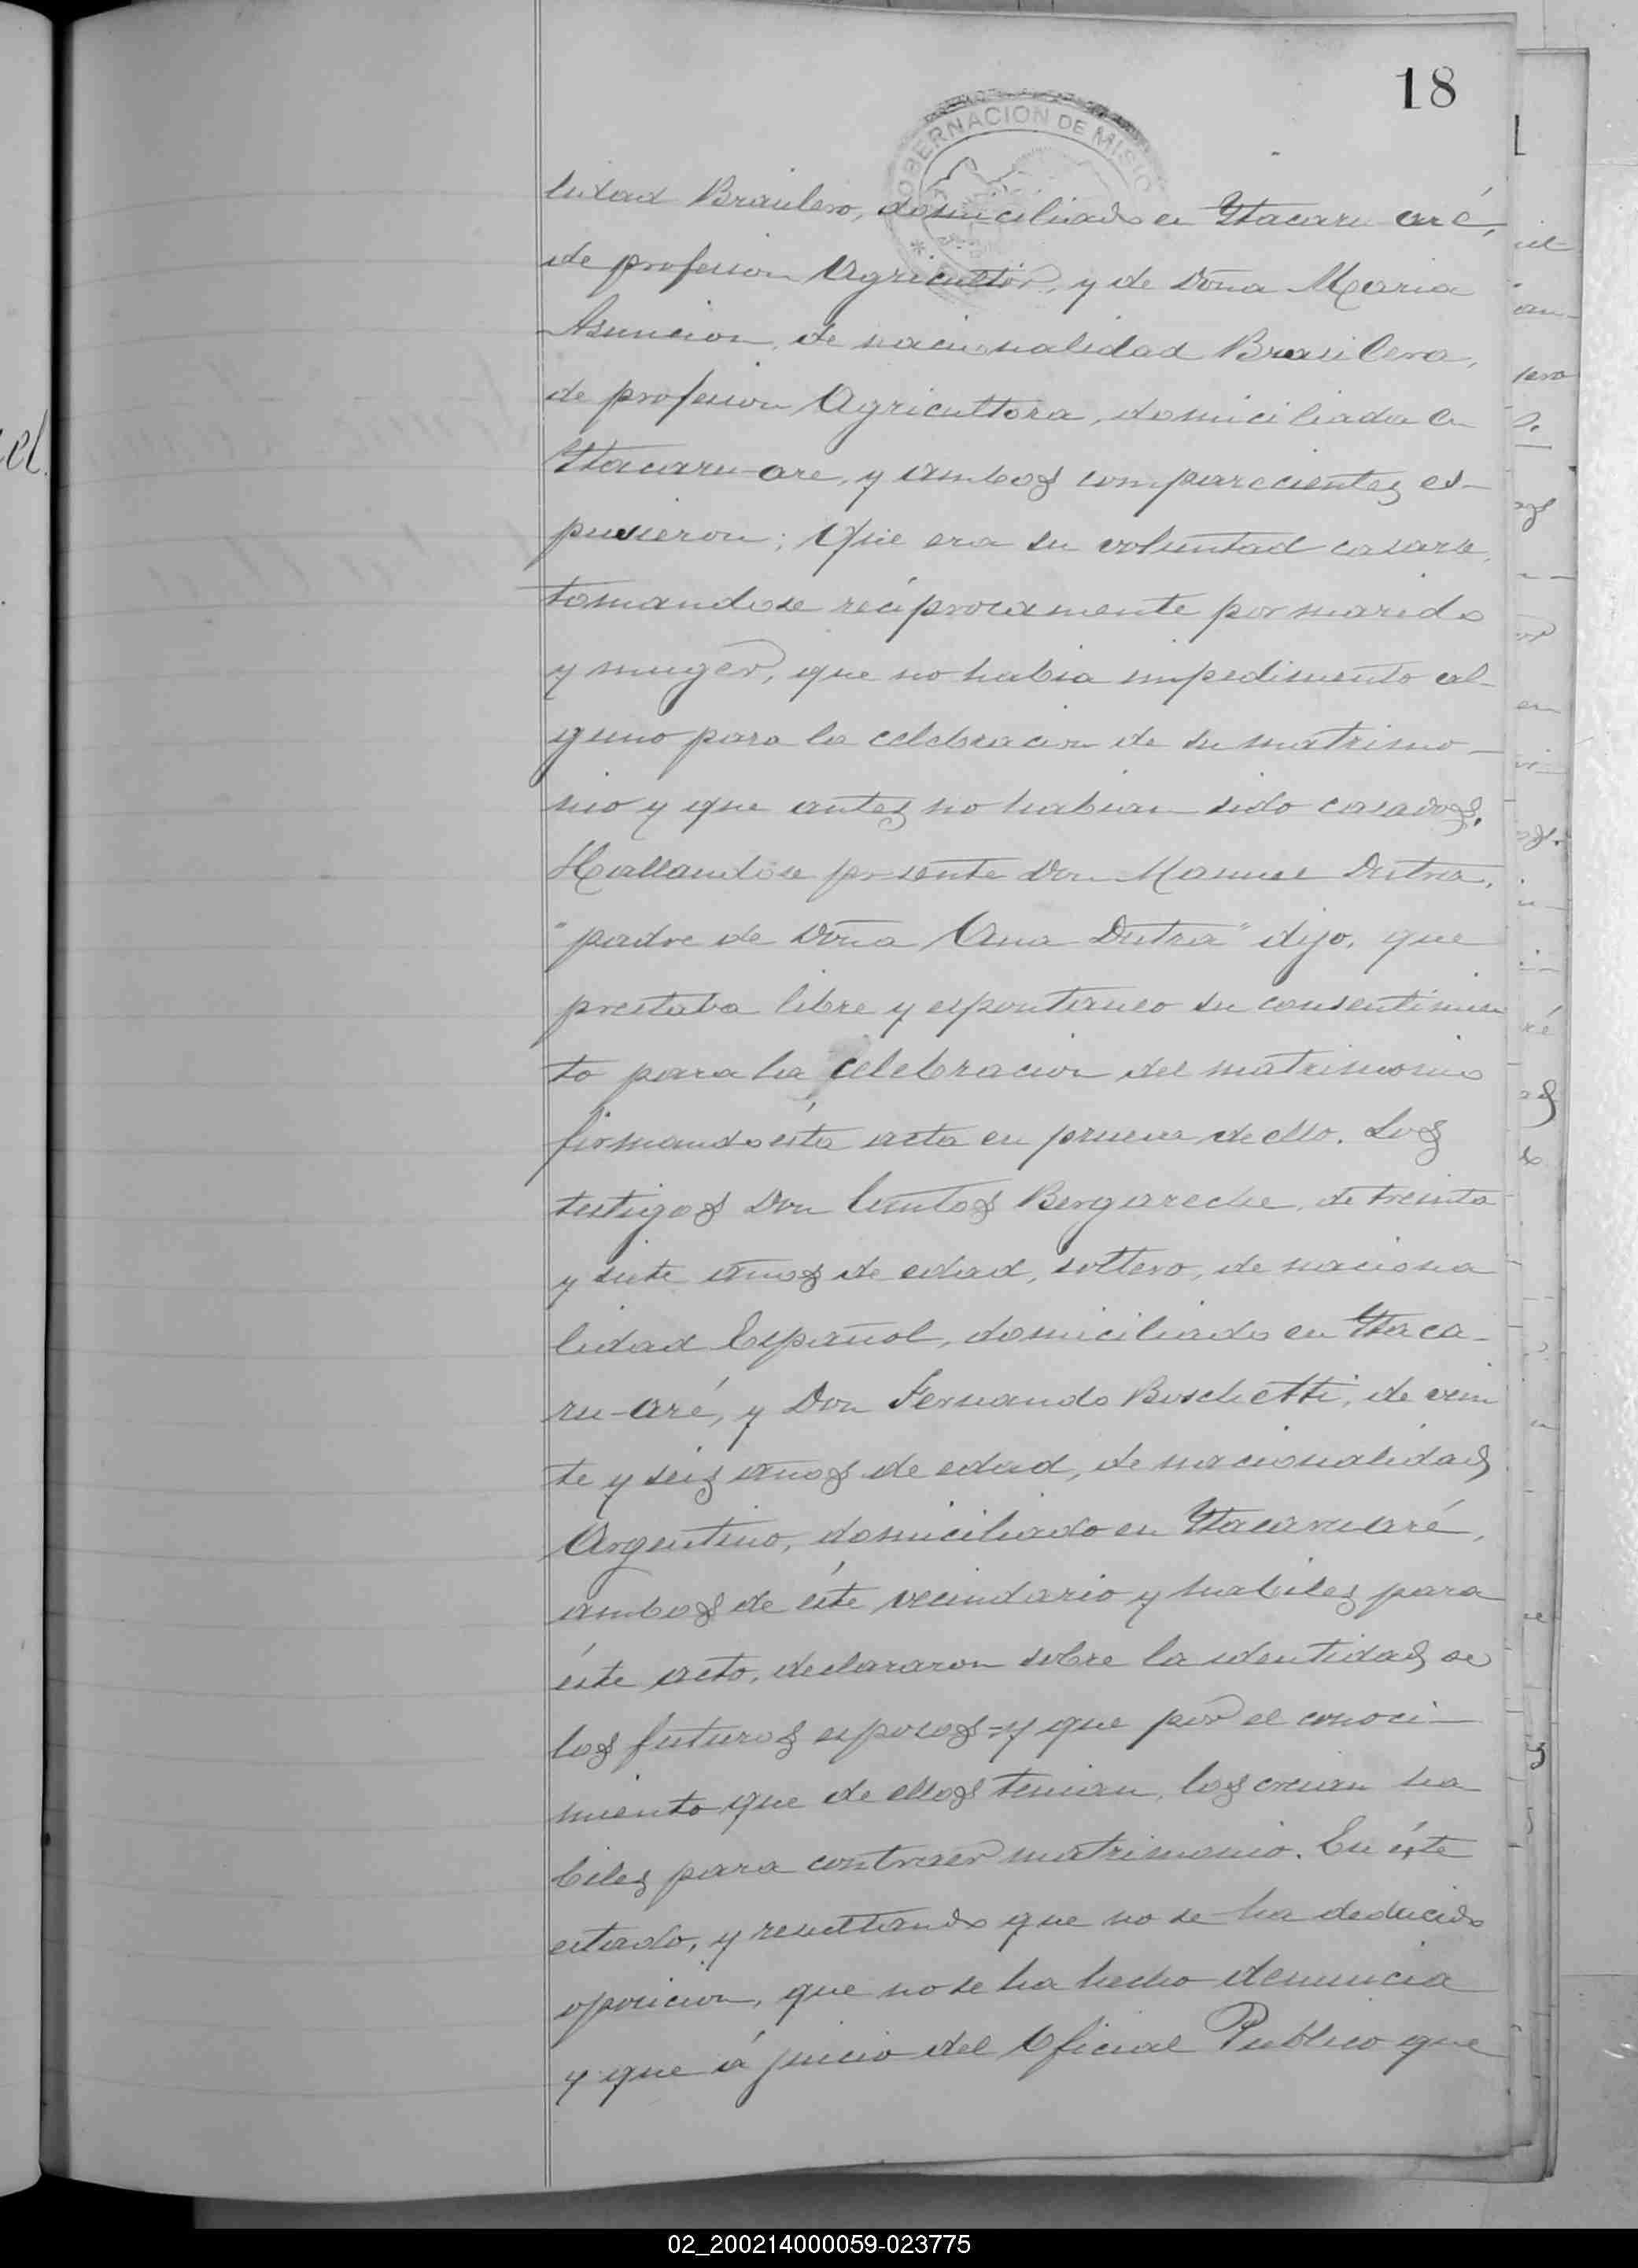 18
GOBERNACION DE MISIO
lidad Brasilero, domiciliado en Ytacaru-aré,
de profesion Agricultor, y de doña Maria
Asuncion, de nacionalidad Brasilera,
de profesion Agricultora, domiciliada en
Ytacaru-are, y ambos comparecientes es-
pusieron; Que era su voluntad casarse,
tomandose recíprocamente por marido
y muger, que no habia impedimento al-
guno para la celebracion de su matrimo-
nio y que antes no habian sido casados.
Hallandose presente Don Manuel Dutra,
"padre de Doña Ana Dutra" dijo, que
prestaba libre y espontaneo su consentimien
to para la celebracion del matrimonio
firmando ésta acta en prueva de ello. Los
testigos Don Bergareche, de treinta
y siete años de edad, soltero, de naciona
lidad Español, domiciliado en Ytaca-
ru-aré, y Don Fernando Boschetti, de vein
te y seis años de edad, de nacionalidad
Argentino, domiciliado en Ytacaruaré,
ambos de éste vecindario y habiles para
éste acto, declararon sobre la identidad de
los futuros esposos=y que por el conoci-
miento que de ellos tenian, los creian ha
biles para contraer matrimonio. En éste
estado, y resultando que no se ha deducido
oposicion, que no se ha hecho denuncia
y que á juicio del Oficial Publico que
02_200214000059-023775